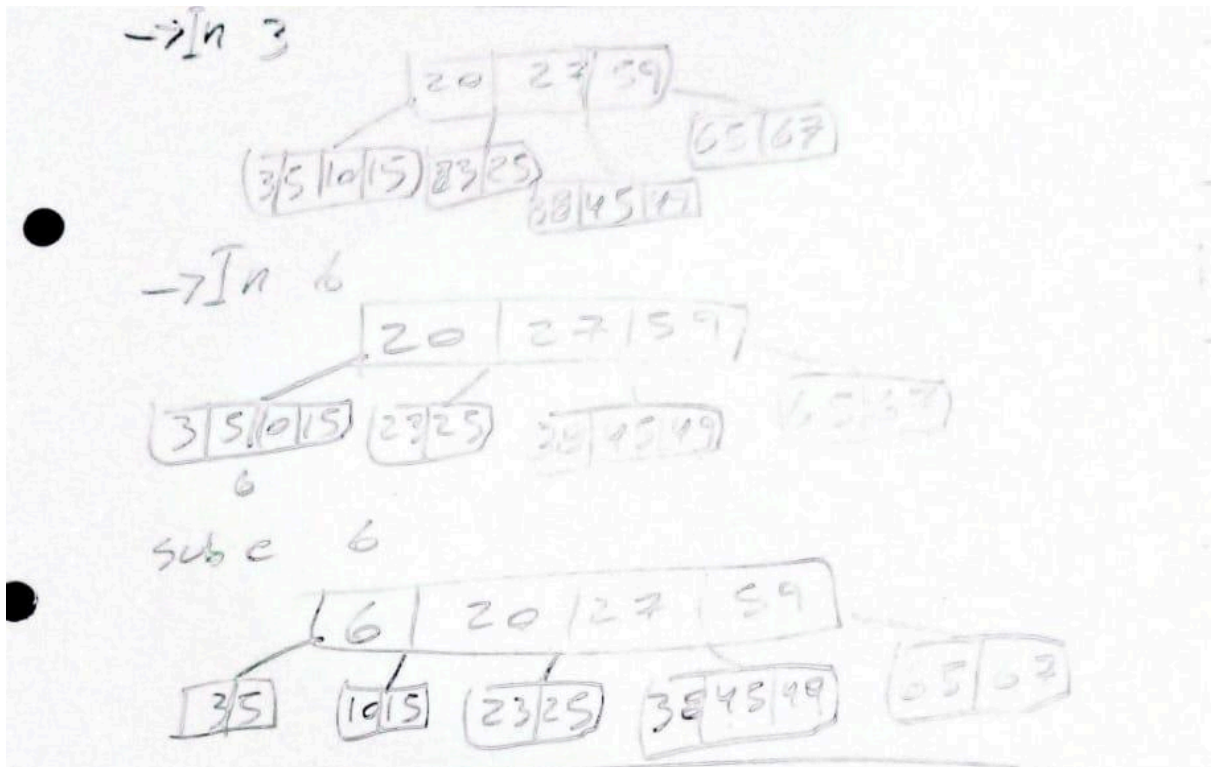 ->In 3
20 27 59
3 5 10 15 23 25 65 67
38 45 49
->In 6
20 27 59
3 5 10 15 23 25 38 45 49
6
sube 6
6 20 27 59
3 5 10 15 23 25 38 45 49 65 67